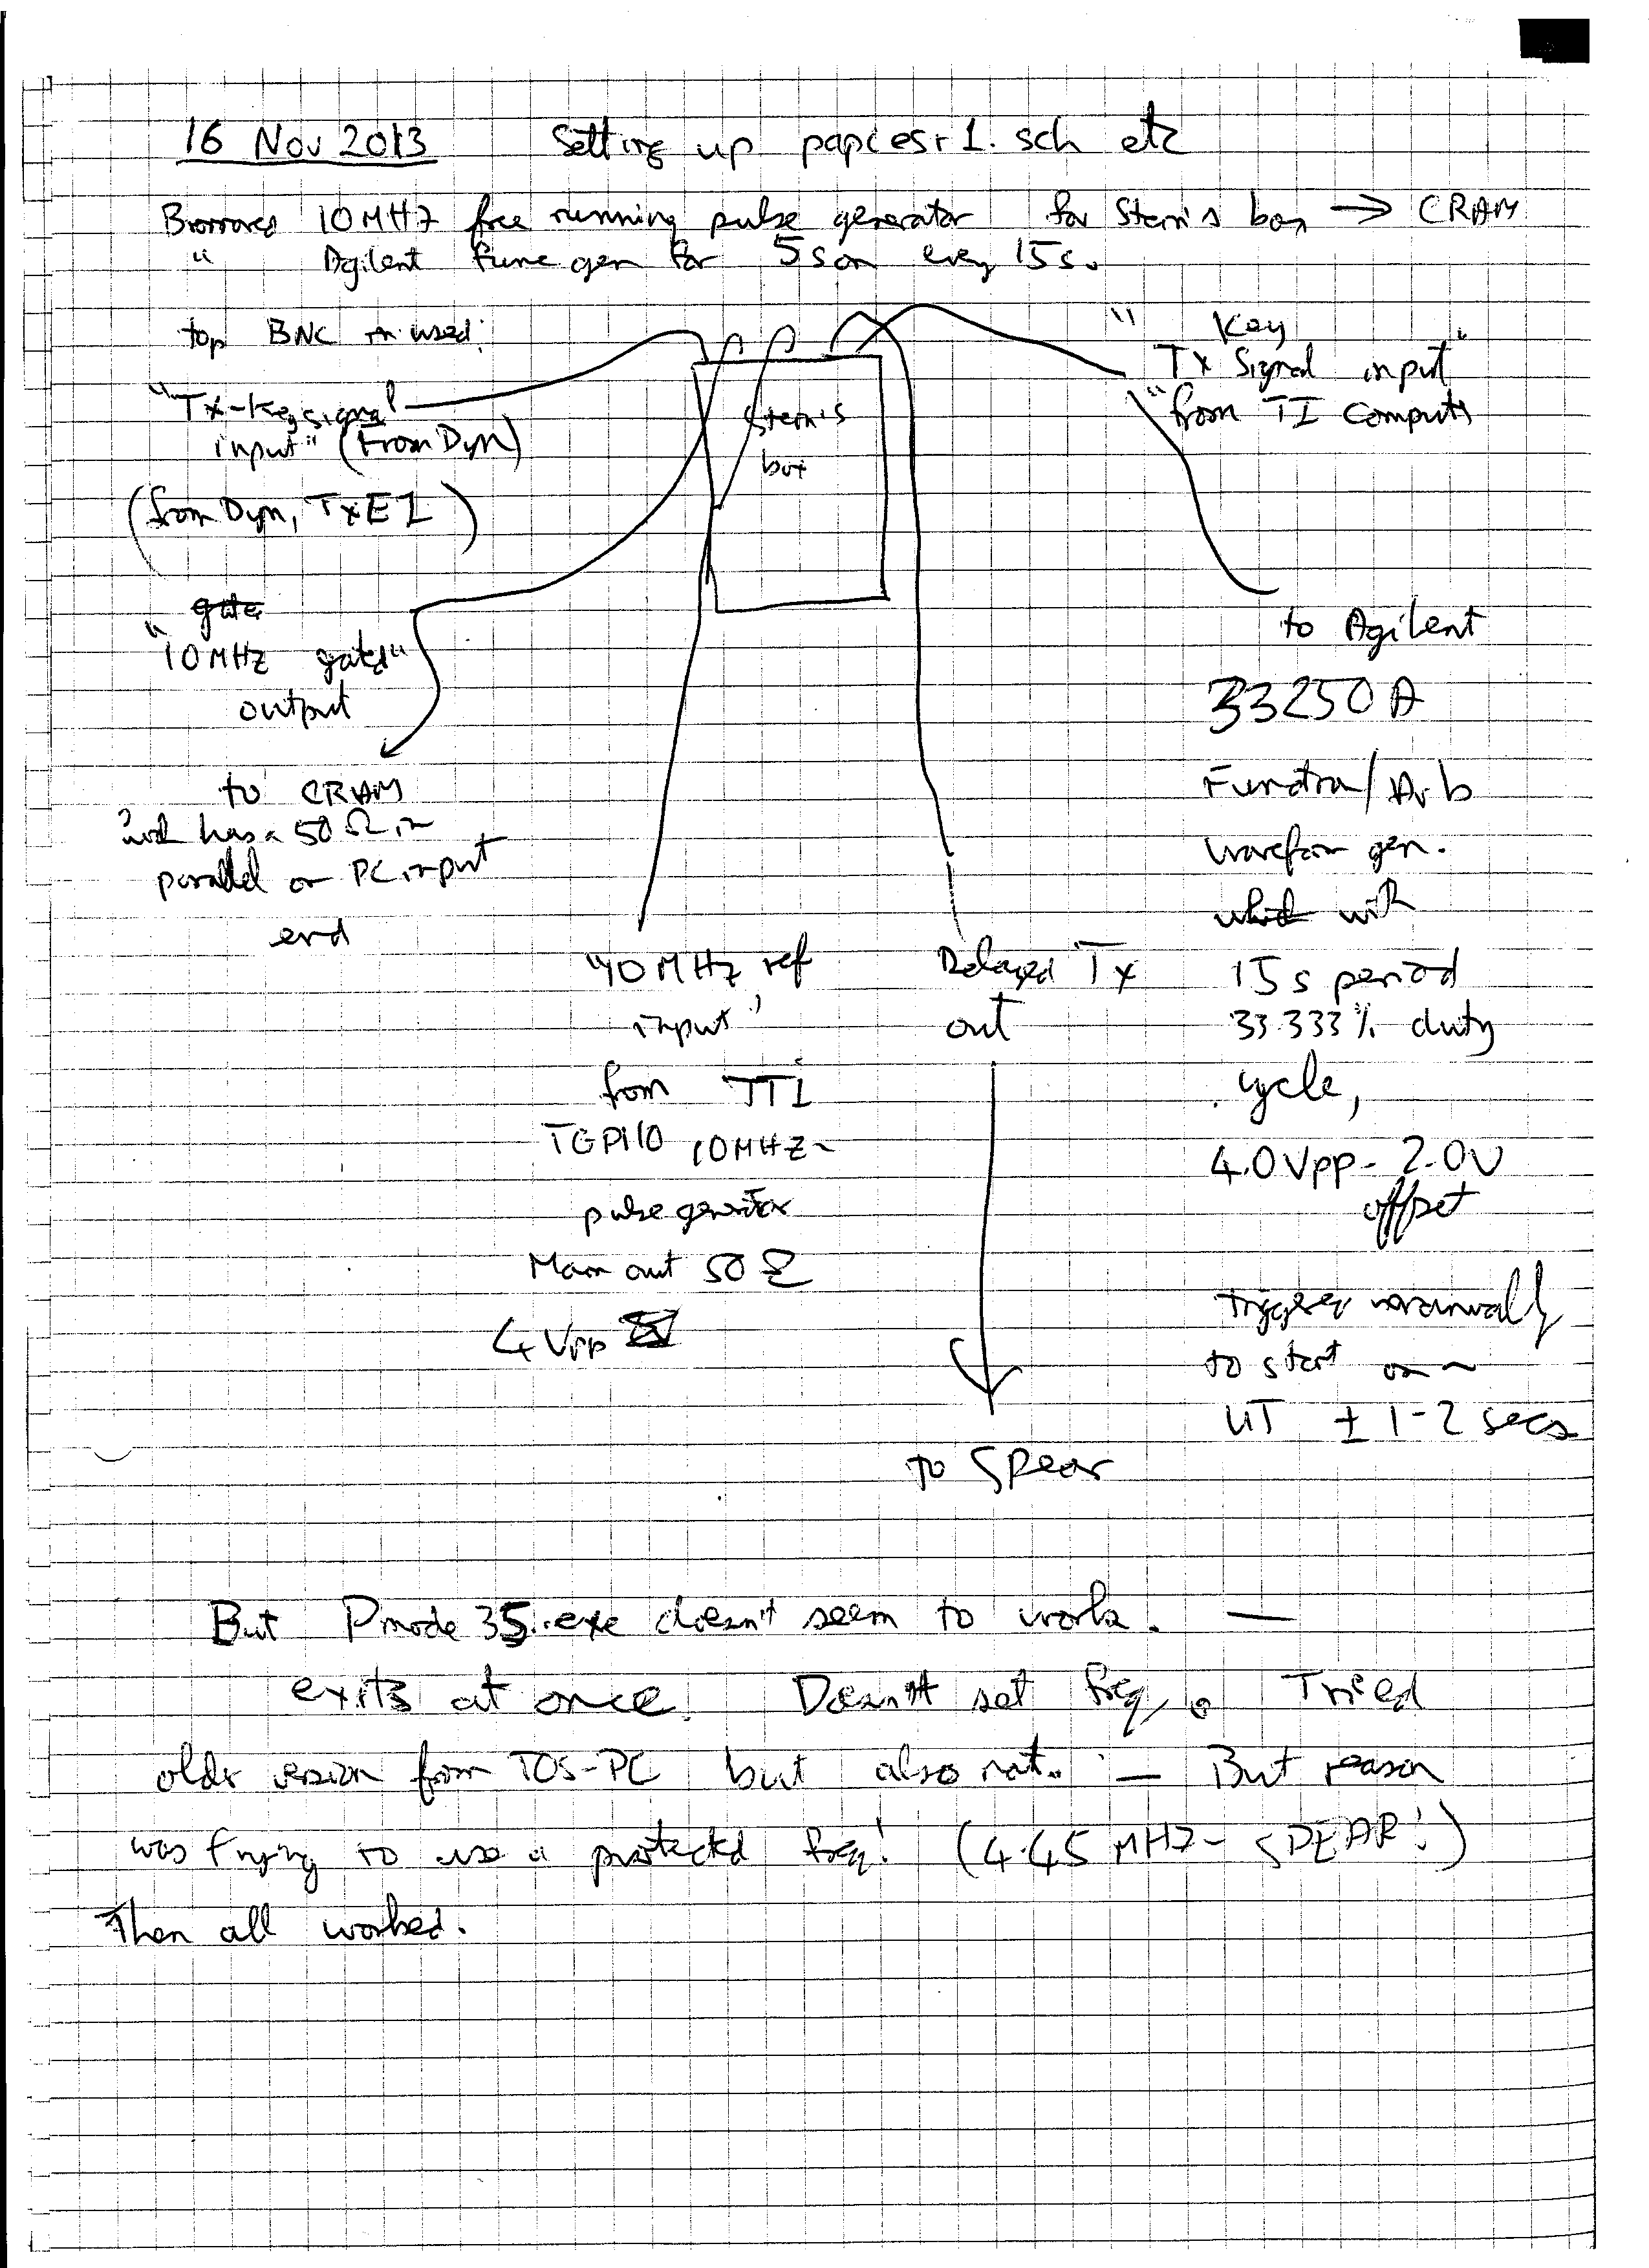 16 Nov 2013 Setting up papiesr1.sch etc
Borrowed 10MHz free running pulse generator for Stein's box → CRAM
" Agilent func gen for 5s on every 15s.
top BNC in used:
"Tx-Key signal
input" (From Dyn)
(from Dyn, TxE1)
Stein's
box
" Key
Tx Signal input"
"from TI Computer
gate
"10MHz gated"
output
to CRAM
has a 50Ω in
parallel on PC input
end
"10MHz ref
input"
from TTI
TGP110 10MHz
pulse generator
Main out 50Ω
4 Vpp
Delayed Tx
out
to Spear
to Agilent
33250A
Function/Arb
waveform gen.
which with
15s period
33.333% duty
cycle,
4.0Vpp - 2.0V
offset
trigger manually
to start on ~
UT ± 1-2 secs
But Pmode35.exe doesn't seem to work. —
exits at once. Doesn't set freq. Tried
older version from TOS-PC but also not. — But reason
was trying to use a protected freq! (4.45 MHz - SPEAR!)
Then all worked.